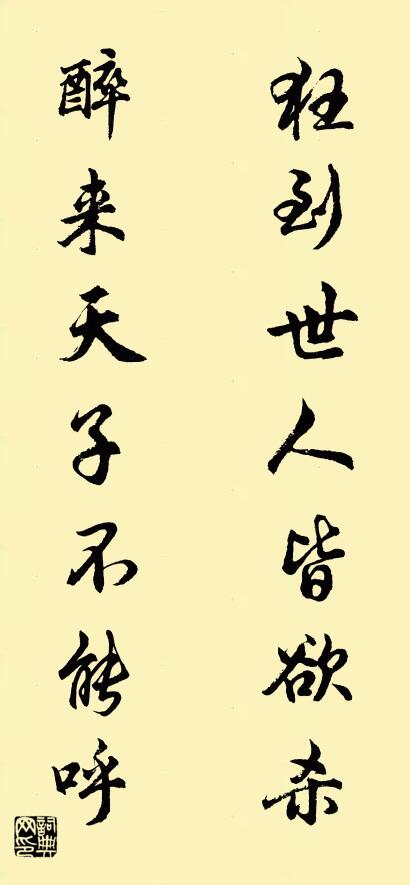 狂到世人皆欲杀
醉来天子不能呼
词典网印